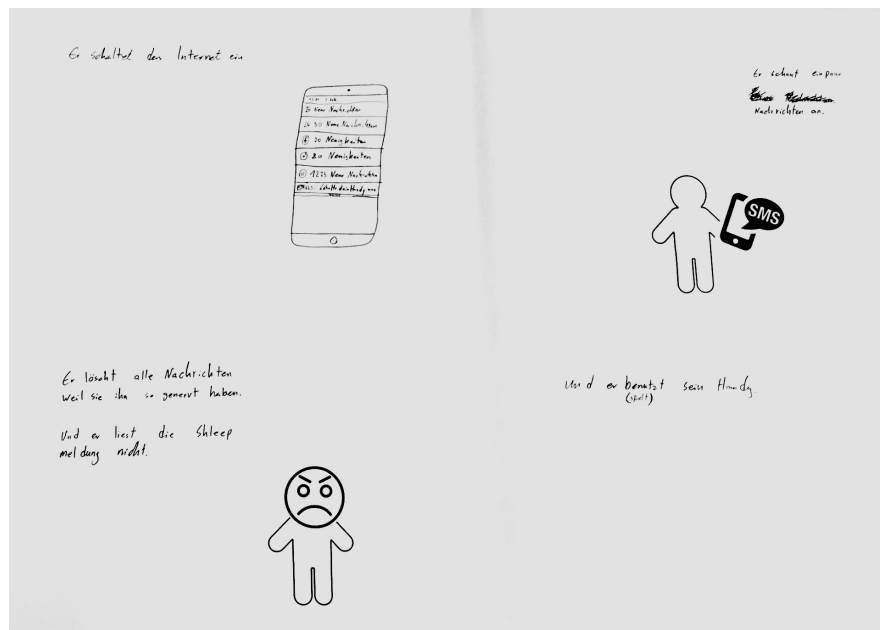 Er schaltet den Internet ein
Neue Nachrichten
30 Neue Nachrichten
20 Neuigkeiten
80 Neuigkeiten
1235 Neue Nachrichten
Er schaut ein paar
Nachrichten an.
SMS
Er löscht alle Nachrichten
Weil sie ihn so genervt haben.
Und er liest die Shleep
meldung nicht.
Und er benutzt sein Handy.
(spielt)